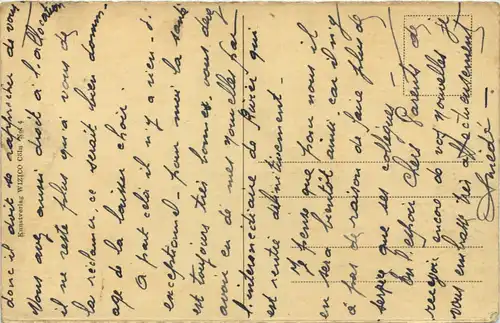 donc il doit se rapprocher de vous
Vous avez aussi droit à l'allocation
il ne reste plus qu'à vous de
la réclamer, ce serait bien domm-
age de la laisser choir.
A part cela il n'y a rien d'
exceptionnel - pour moi la santé
est toujours très bonne, vous devez
avoir eu de mes nouvelles par
l'intermédiaire de Rivier qui
est rentré définitivement -
Je pense que pour nous il
en sera bientôt ainsi car il n'y
a pas de raison de faire plus de
temps que ses collègues -
En l'espoir Chers Parents de
recevoir encore de vos nouvelles je
vous embrasse très affectueusement
Amédée -
Kunstverlag WIZICO Cöln